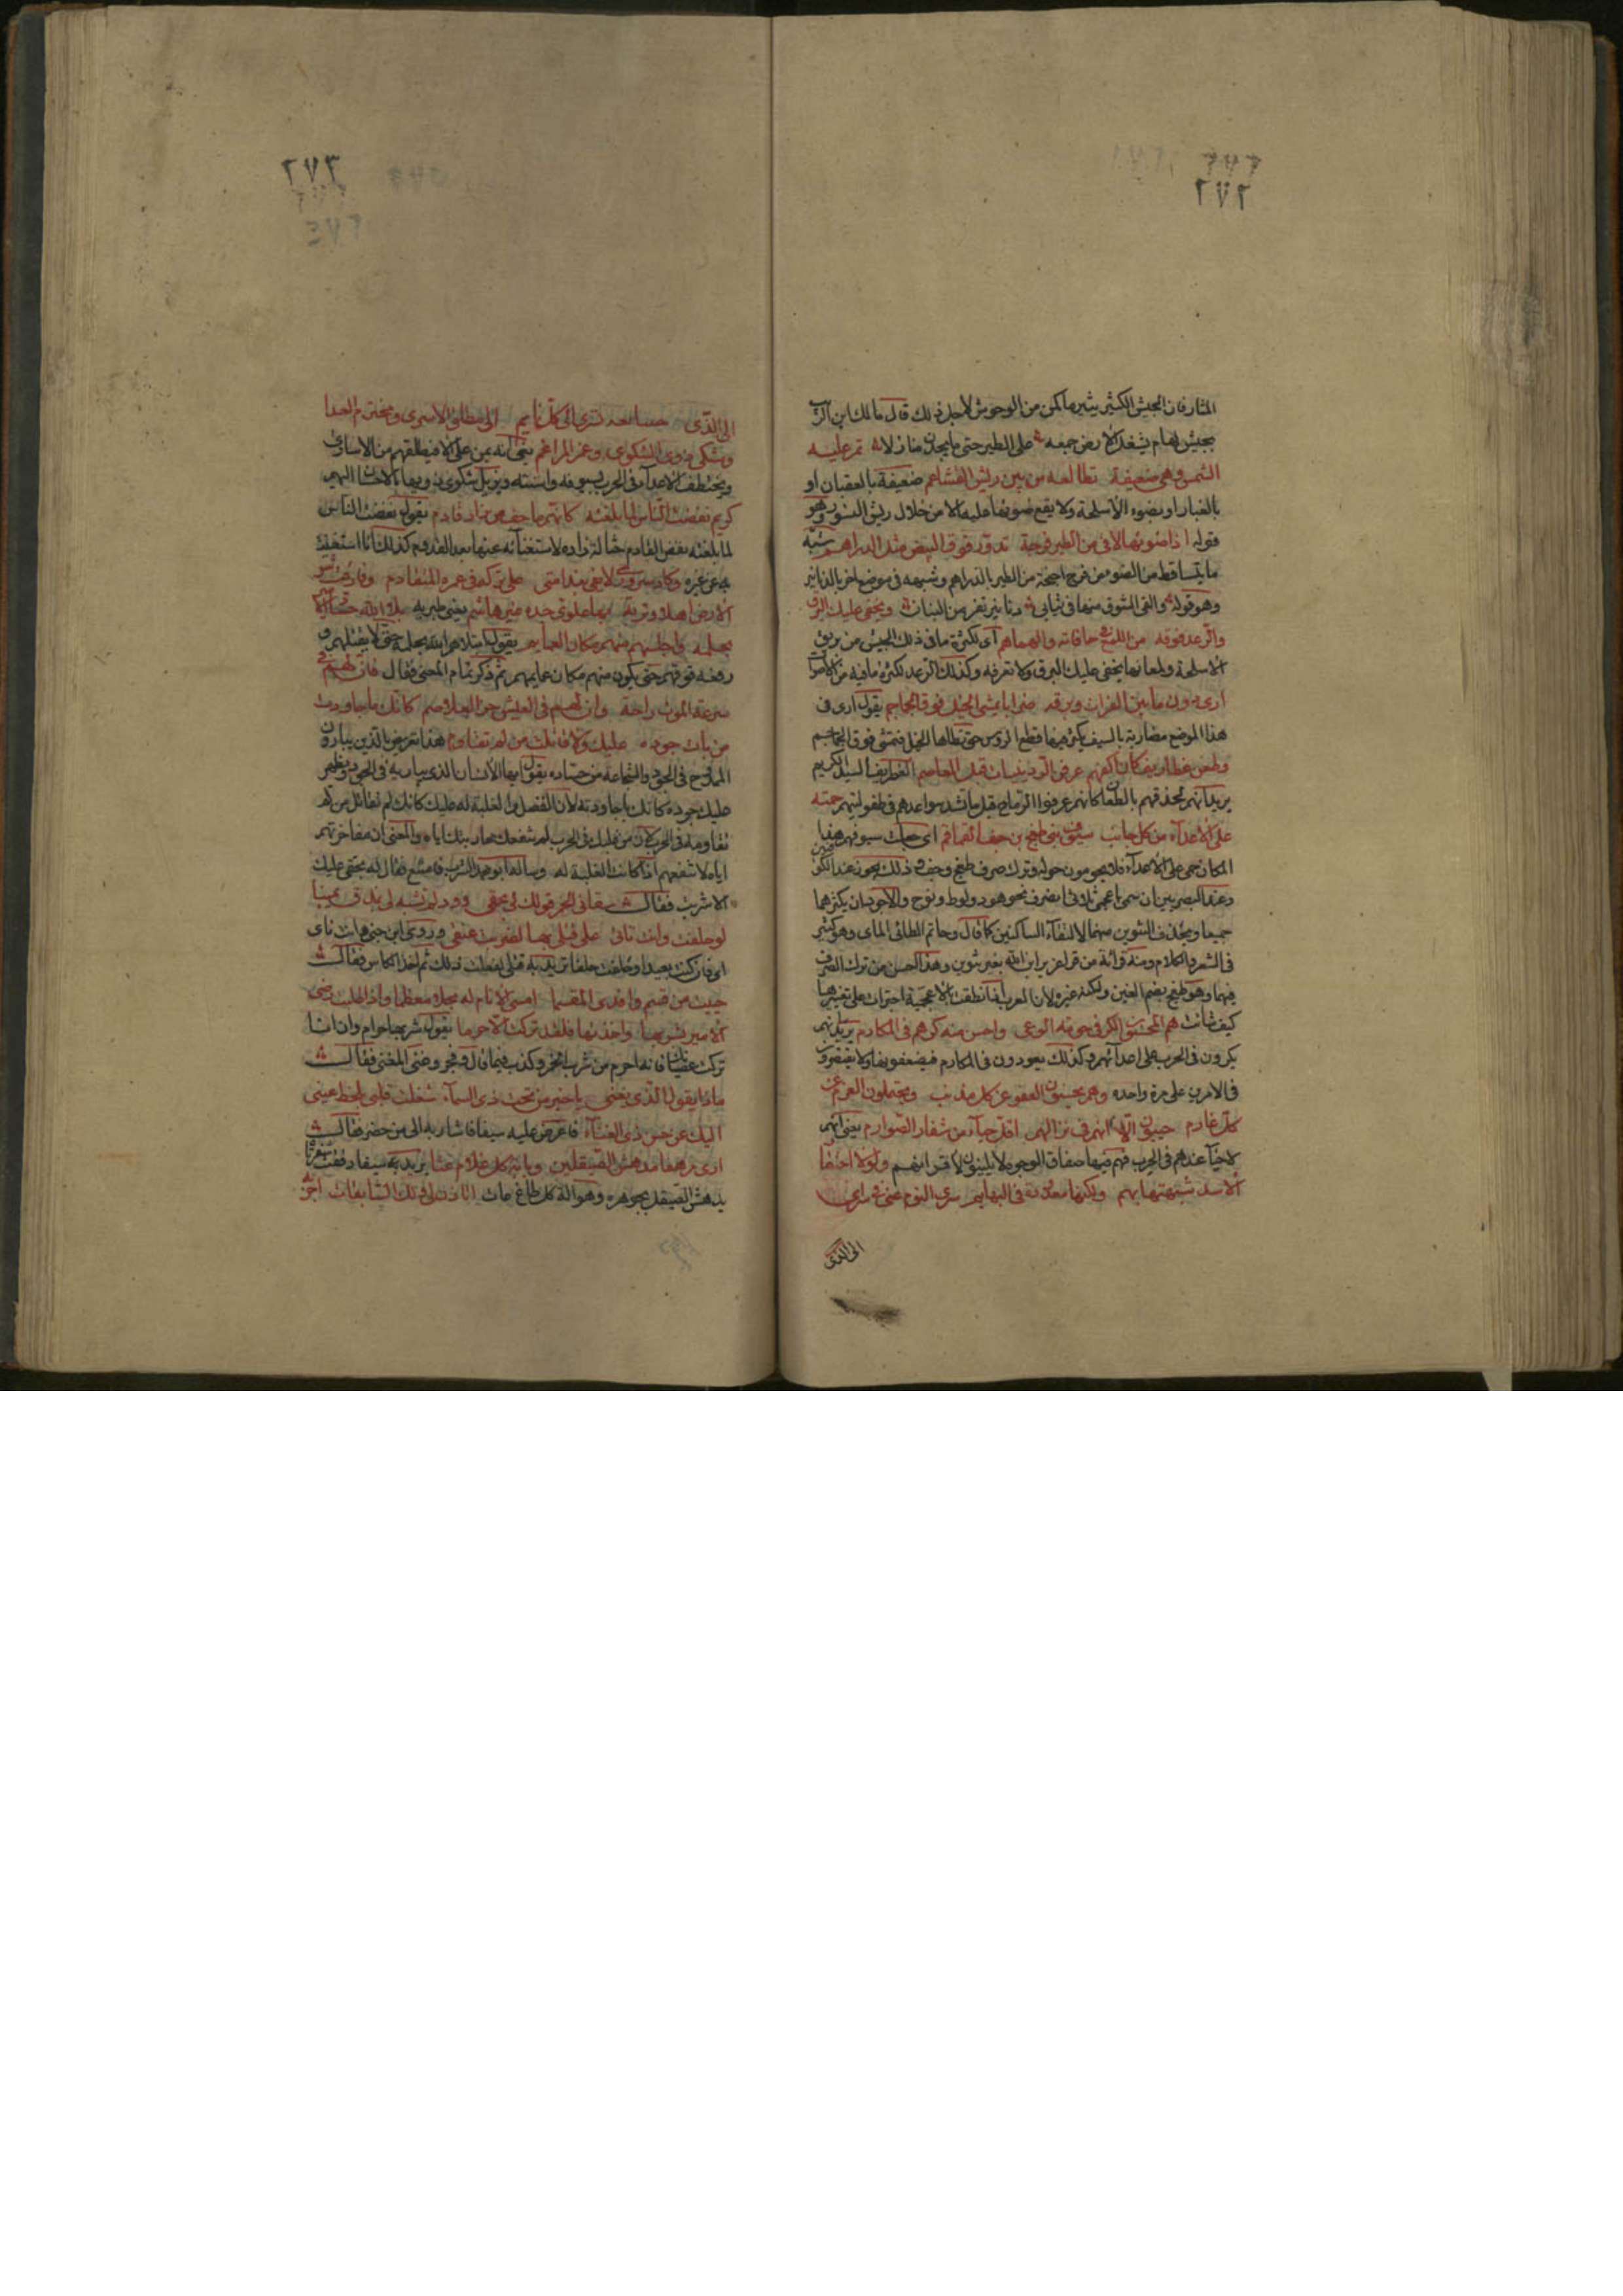 ٢٧٢
المثار فان الجيش الكثير يثير ما كمن من الوحوش لاجل ذلك قال مالك ابن الريب
بجيش لهام يشغل الارض جمعه على الطير حتى ما يجدن منازلا تمر عليه
الشمس وهي ضعيفة تطالعه من بين ريش القشاعم ضعيفة بالعقبان او
بالغبار او بضوء الاسلحة ولا يقع ضوئها عليه الا من خلال ريش النسور وهو
قوله اذا ضوئها لاقى من الطير فرجة تدور فوق البيض مثل الدراهم شبه
ما يتساقط من الضوء من فرج اجنحة من الطير بالدراهم وشبهه في موضع اخر بالدنانير
وهو قوله والقى الشرق منها في ثيابى دنانير تفر من البنان ويخفى عليك البرق
والرعد فوقه من اللمع في حافاته والهماهم اى لكثرة ما في ذلك الجيش من بريق
الاسلحة ولمعانها يخفى عليك البرق ولا تعرفه وكذلك الرعد لكثرة ما فيه من الاصوات
ارى دون ما بين الفرات وبرقه ضرابا يمشى الخيل فوق الجماجم يقول ارى في
هذا الموضع مضاربة بالسيف يكثر فيها قطع الروس حتى تطاها الخيل فتمشى فوق الجماجم
وطعن غطاريف كان اكفهم عرفن الردينيات قبل المعاصم الغطريف السيد الكريم
يريد انهم لحذقهم بالطعن كانهم عرفوا الرماح قبل ما تشد سواعدهم في طفوليتهم حمته
على الاعداء من كل جانب سيوف بنى طغج بن جف القماقم اى حمت سيوفهم هذا
المكان حمى على الاعداء فلا يحومون حوله وترك صرف طغج وجف وذلك يجوز عند الكوفيين
وعند البصريين ان سمى باعجمى ثلاثى انصرف نحو هود ولوط ونوح والاجود ان يكسرهما
جميعا ويحذف التنوين منهما لالتقاء الساكنين كما قال وحاتم الطائى وهو كثير
في الشعر والكلام ومنه قرائة من قرا عزير ابن الله بغير تنوين وهذا احسن من ترك الصرف
فيهما وهو طغج بضم الغين ولكنه غيره لان العرب اذا نطقت بالاعجمية اجترات على تغييرها
كيف شاءت هم المحسنون الكر في حومة الوغى واحسن منه كرهم في المكارم يريد انهم
يكرون في الحرب على اعدائهم وكذلك يعودون في المكارم فيضعفونها ولا يقتصرون
في الامرين على مرة واحدة وهم يحسنون العفو عن كل مذنب ويحتملون الغرم عن
كل غارم حييون الا انهم في نزالهم اقل حياء من شفار الصوارم يعنى انهم
لا حياء عندهم في الحرب فهم فيها صفاق الوجوه لا يلينون لاقرانهم ولولا احتقار
الاسد شبهتها بهم ولكنها معدودة في البهايم سرى النوم عنى في سراى
الى الذى
٢٧٣
٢٧٤
الى الذى صنايعه تسرى الى كل نايم الى مطلق الاسرى ومخترم العدا
ومشكى ذوى الشكوى ورغم المراغم يعنى انه يمن على الاسرى فيطلقهم من الاسارى
ويختطف الاعداء في الحرب بسيوفه واسنته ويزيل شكوى ذويها بالاحسان اليهم
كريم نفضت الناس لما بلغته كانهم ما جف من زاد قادم يقول نفضت الناس
لما بلغته نفض القادم حثالة زاده لاستغنائه عنها بعد القدوم كذلك انا استغنيت
به عن غيره وكاد سرورى لا يفى بندامتى على تركه في عمرى المتقادم وفارقت شر
الارض اهلا وتربة بها علوى جده غير هاشم يعنى طبرية بلى الله حساد الامير
بحلمه واجلسه منهم مكان العمايم يقول ابتلاهم الله بحلمه حتى لا يقتلهم و
رفعه فوقهم حتى يكون منهم مكان عمايمهم ثم ذكر تمام المعنى فقال فان لهم في
سرعة الموت راحة وان لهم في العيش حز الغلاصم كانك ما جاودت
من بان جوده عليك ولا قاتلت من لم تقاوم هذا تعريض بالذين يبارون
الممدوح في الجود والشجاعة من حساده يقول ايها الانسان الذى يباريه في الجود ويظهر
عليك جوده كانك ما جاودته لان الفضل والغلبة له عليك كانك لم تقاتل من لم
تقاومه في الحرب لان من غلبك في الحرب لم تنفعك محاربتك اياه والمعنى ان مفاخرتهم
اياه لا تنفعهم اذا كانت الغلبة له وساله ابو محمد الشرب فامتنع فقال له بحقى عليك
الا شربت فقال سقانى الخمر قولك لى بحقى وود لم تشبه لى بمذق يمينا
لو حلفت وانت نائى على قتلى بها لضربت عنقى وروى ابن جنى وانت ناى
اى فان كنت بعيدا وحلفت حلفا تريد به قتلى لفعلت ذلك ثم اخذ الكاس فقال
حييت من قسم وافدى المقسما امسى الانام له مجلا معظما واذا طلبت رضى
الامير بشربها واخذتها فلقد تركت الاحرما يقول شربها حرام وان انا
تركت عصيانا فانه احرم من شرب الخمر وكذب فيما قال وفجر وغنى المغنى فقال
ماذا يقول الذى يغنى يا خير من تحت ذى السماء شغلت قلبى بلحظ عينى
اليك عن حسن ذى الغناء فاعرض عليه سيفا فاشار به الى من حضر فقال
ارى مرهفا مدهش الصيقلين وبابة كل غلام عتا يريد به سيفا رققت شفرتا
يدهش الصيقل بجوهره وهو الة كل طاغ عات اتاذن لى ولك السابقات اجر